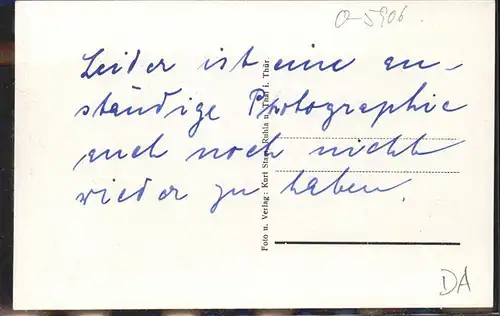 O-5906.
Leider ist eine an-
ständige Photographie
auch noch nicht
wieder zu haben.
Foto u. Verlag: Kurt Ruhla u. Thal i. Thür.
DA